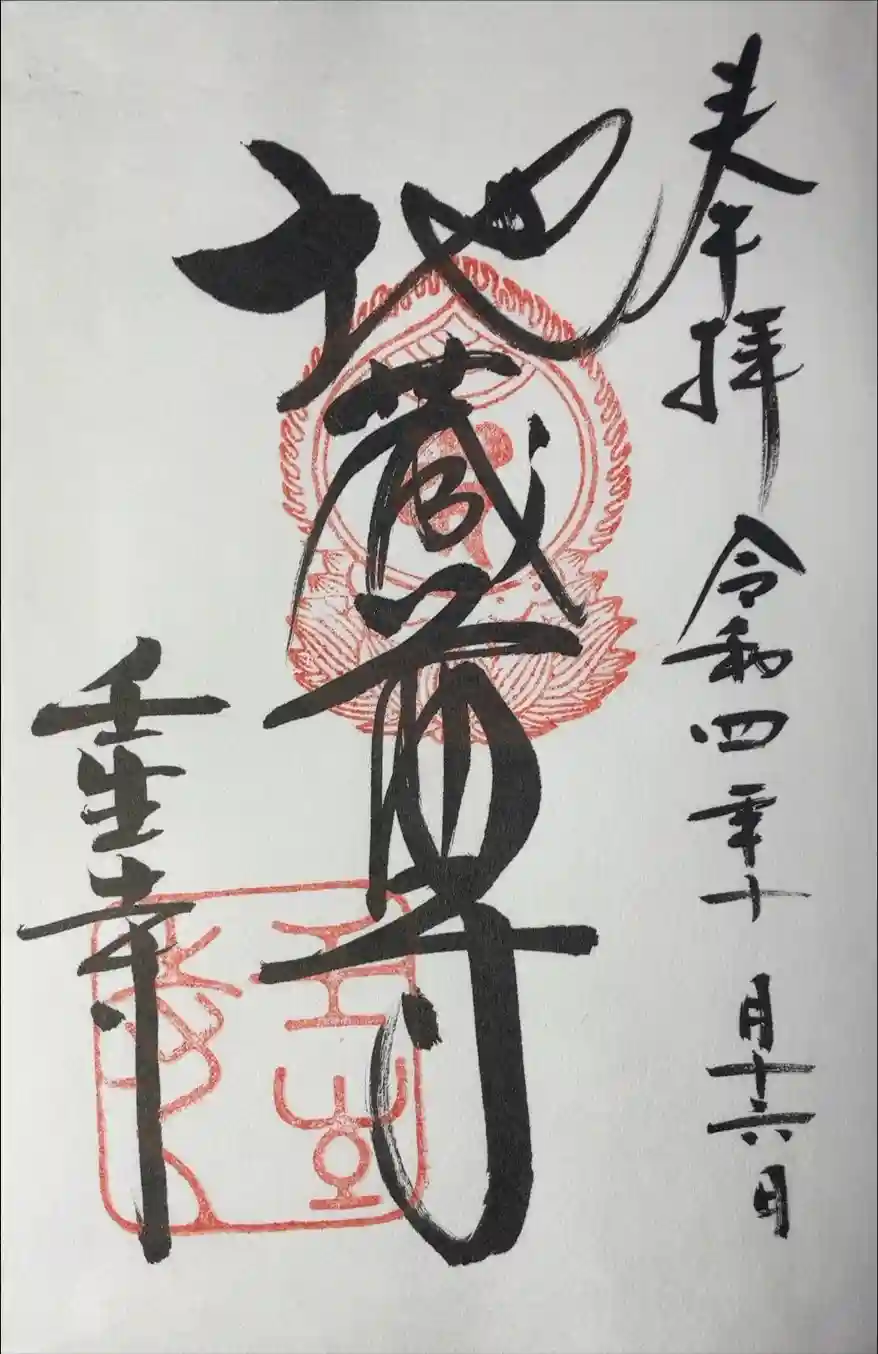 奉拝 令和四年十一月十六日
地蔵尊
壬生寺